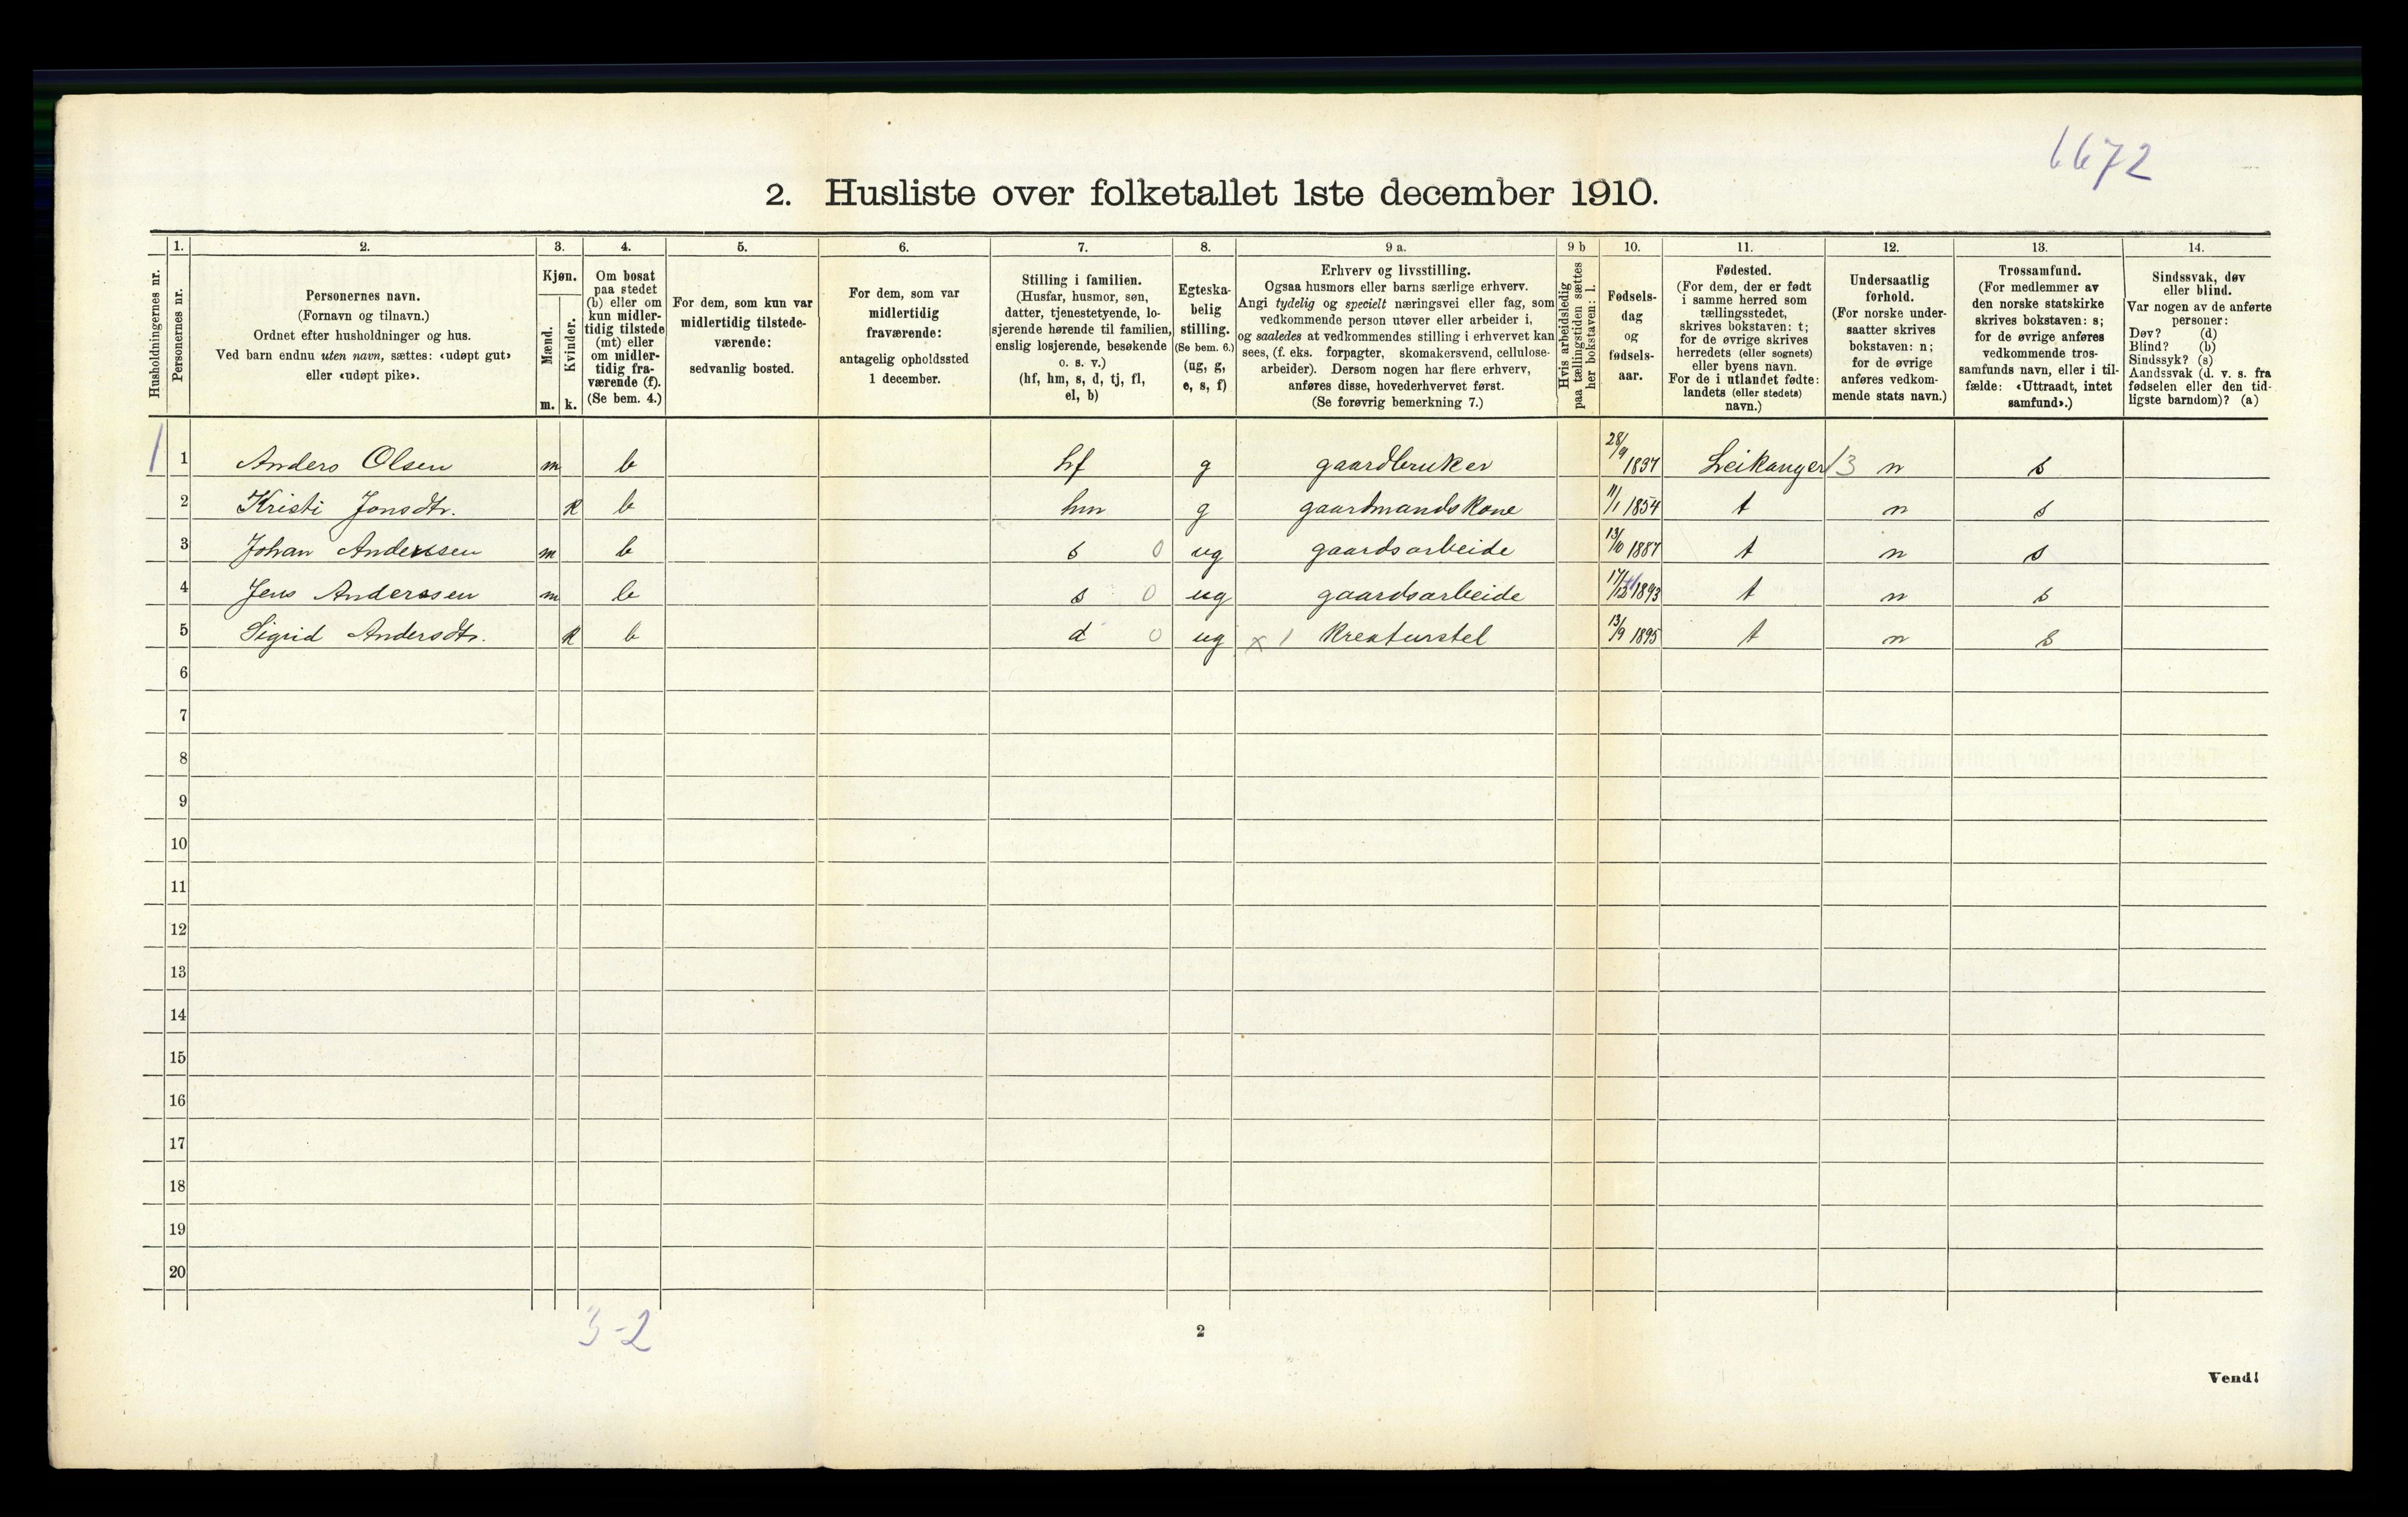 6672
2. Husliste over folketallet 1ste december 1910.
Husholdningernes nr.
1.
Personernes nr.
2.
Personernes navn.
(Fornavn og tilnavn.)
Ordnet efter husholdninger og hus.
Ved barn endnu uten navn, sættes: «udøpt gut»
eller «udøpt pike».
3.
Kjøn.
Mænd.
Kvinder.
m. k.
4.
Om bosat
paa stedet
(b) eller om
kun midler-
tidig tilstede
(mt) eller
om midler-
tidig fra-
værende (f).
(Se bem. 4.)
5.
For dem, som kun var
midlertidig tilstede-
værende:
sedvanlig bosted.
6.
For dem, som var
midlertidig
fraværende:
antagelig opholdssted
1 december.
7.
Stilling i familien.
(Husfar, husmor, søn,
datter, tjenestetyende, lo-
sjerende hørende til familien,
enslig losjerende, besøkende
o. s. v.)
(hf, hm, s, d, tj, fl,
el, b)
8.
Egteska-
belig
stilling.
(Se bem. 6.)
(ug, g,
e, s, f)
9 a.
Erhverv og livsstilling.
Ogsaa husmors eller barns særlige erhverv.
Angi tydelig og specielt næringsvei eller fag, som
vedkommende person utøver eller arbeider i,
og saaledes at vedkommendes stilling i erhvervet kan
sees, (f. eks. forpagter, skomakersvend, cellulose-
arbeider). Dersom nogen har flere erhverv,
anføres disse, hovederhvervet først.
(Se forøvrig bemerkning 7.)
9 b
Hvis arbeidsledig
paa tællingstiden sættes
her bokstaven: l.
10.
Fødsels-
dag
og
fødsels-
aar.
11.
Fødested.
(For dem, der er født
i samme herred som
tællingsstedet,
skrives bokstaven: t;
for de øvrige skrives
herredets (eller sognets)
eller byens navn.
For de i utlandet fødte:
landets (eller stedets)
navn.)
12.
Undersaatlig
forhold.
(For norske under-
saatter skrives
bokstaven: n;
for de øvrige
anføres vedkom-
mende stats navn.)
13.
Trossamfund.
(For medlemmer av
den norske statskirke
skrives bokstaven: s;
for de øvrige anføres
vedkommende tros-
samfunds navn, eller i til-
fælde: «Uttraadt, intet
samfund».)
14.
Sindssvak, døv
eller blind.
Var nogen av de anførte
personer:
Døv? (d)
Blind? (b)
Sindssyk? (s)
Aandssvak (d. v. s. fra
fødselen eller den tid-
ligste barndom)? (a)
1 1 Anders Olsen m b hf g gaardbruker 28/9 Leikanger 13 n s
2 Kristi Jonsdtr. k b hm g gaardmandskone 11/1 1854 t n s
3 Johan Anderssen m b s 0 ug gaardsarbeide 13/10 1887 t n s
4 Jens Anderssen m b s 0 ug gaardsarbeide 17/12 1893 t n s
5 Sigrid Andersdtr. k b d 0 ug x 1 kreaturstel 13/9 1895 t n s
6
7
8
9
10
11
12
13
14
15
16
17
18
19
20
3-2
2
Vend!